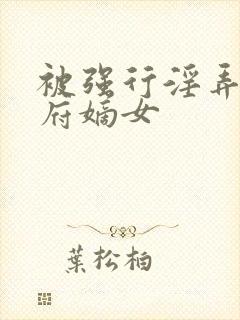 被强行淫弄
府嫡女
葉松柏